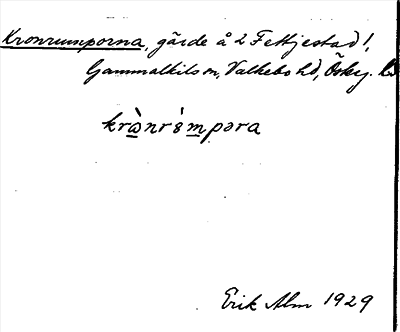 Kronrumporna, gärde å 2 Fettjestad!,
Gammalkils sn, Valkebo hd, Östg. län
krὼnrúmpəra
Erik Alm 1929